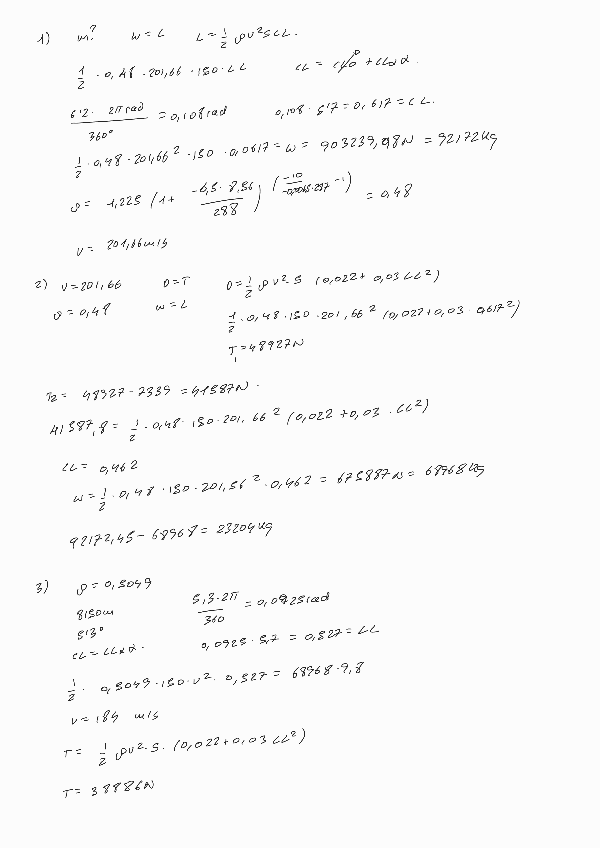 1) m? W = L L = 1/2 ρv²SCL.
1/2 · 0,48 · 201,66 · 150 · CL CL = CL0 + CLα α.
6'2 · 2π rad / 360° = 0,108 rad 0,108 · 5'7 = 0,617 = CL.
1/2 · 0,48 · 201,66² · 150 · 0,0617 = W = 903239,98N = 92172kg
ρ = 1,225 (1 + -6,5 · 8,56 / 288) (-10 / -0,0065·287 -1) = 0,48
v = 201,66 m/s
2) V = 201,66 D = T D = 1/2 ρv² · S (0,022 + 0,03 CL²)
ρ = 0,48 W = L 1/2 · 0,48 · 150 · 201,66² (0,022 + 0,03 · 0,617²)
T1 = 48927N
T2 = 48927 - 7339 = 41587N.
41587,8 = 1/2 · 0,48 · 150 · 201,66² (0,022 + 0,03 · CL²)
CL = 0,462
W = 1/2 · 0,48 · 150 · 201,56² · 0,462 = 675887N = 68968kg
92172,45 - 68968 = 23204kg
3) ρ = 0,5049
8150m 5,3 · 2π / 360 = 0,0925 rad
5'3°
CL = CLα α. 0,0925 · 5,7 = 0,527 = CL
1/2 · 0,5049 · 150 · v² · 0,527 = 68968 · 9,8
v = 184 m/s
T = 1/2 ρv² · S · (0,022 + 0,03 CL²)
T = 38886N